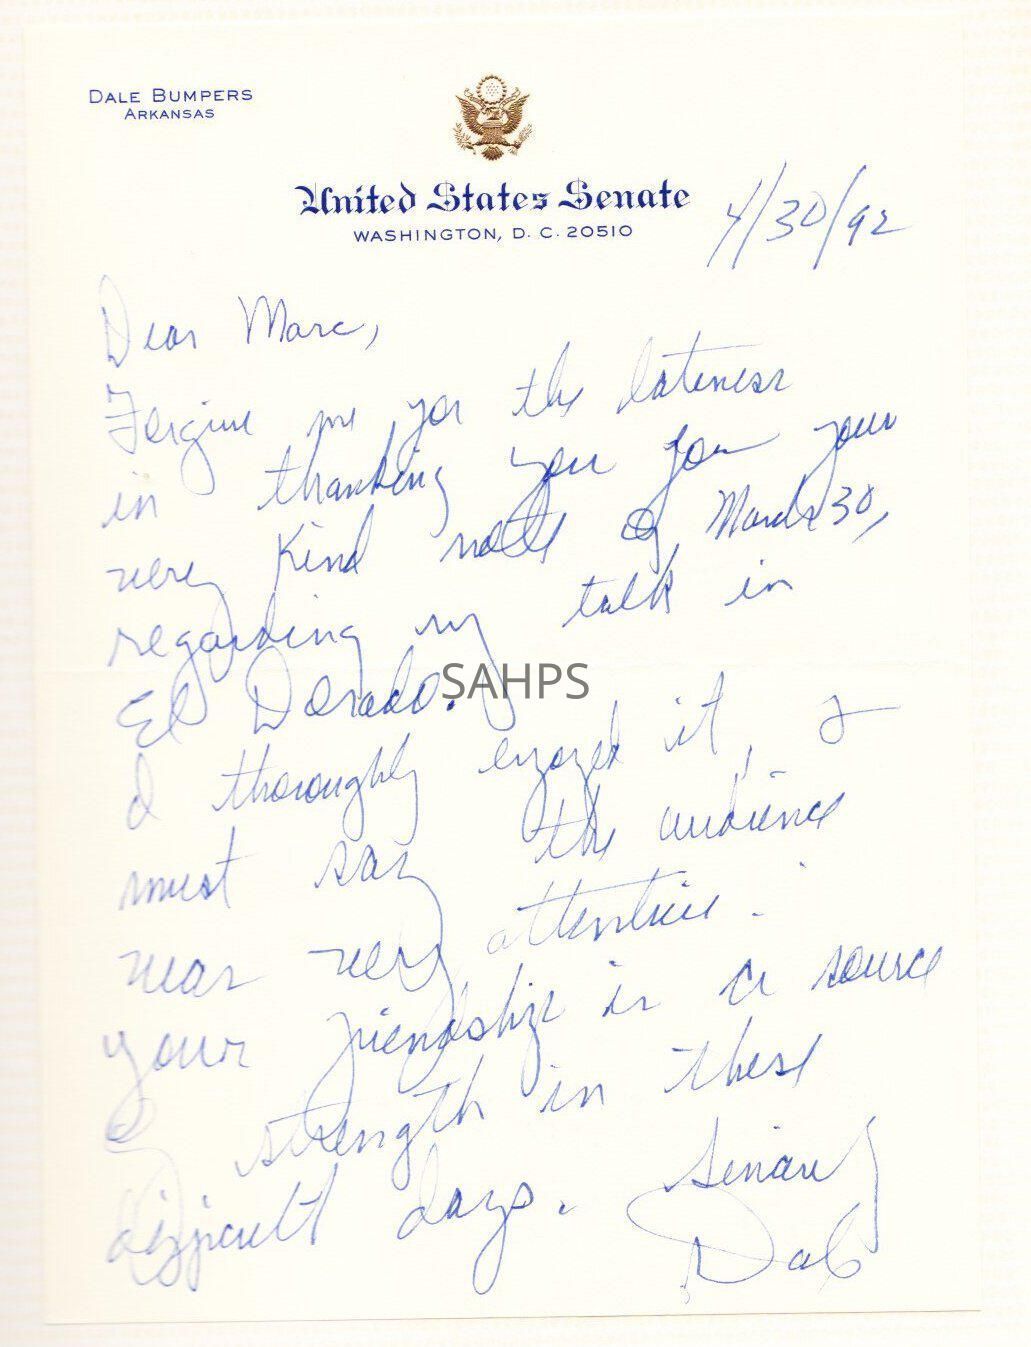 DALE BUMPERS
ARKANSAS
United States Senate
WASHINGTON, D. C. 20510
4/30/92
Dear Marc,
Forgive me for the lateness
in thanking you for your
very kind note of March 30,
regarding my talk in
El Dorado.
SAHPS
I thoroughly enjoyed it, &
must say the audience
was very attentive.
Your friendship is a source
of strength in these
difficult days. Sincerely
Dale